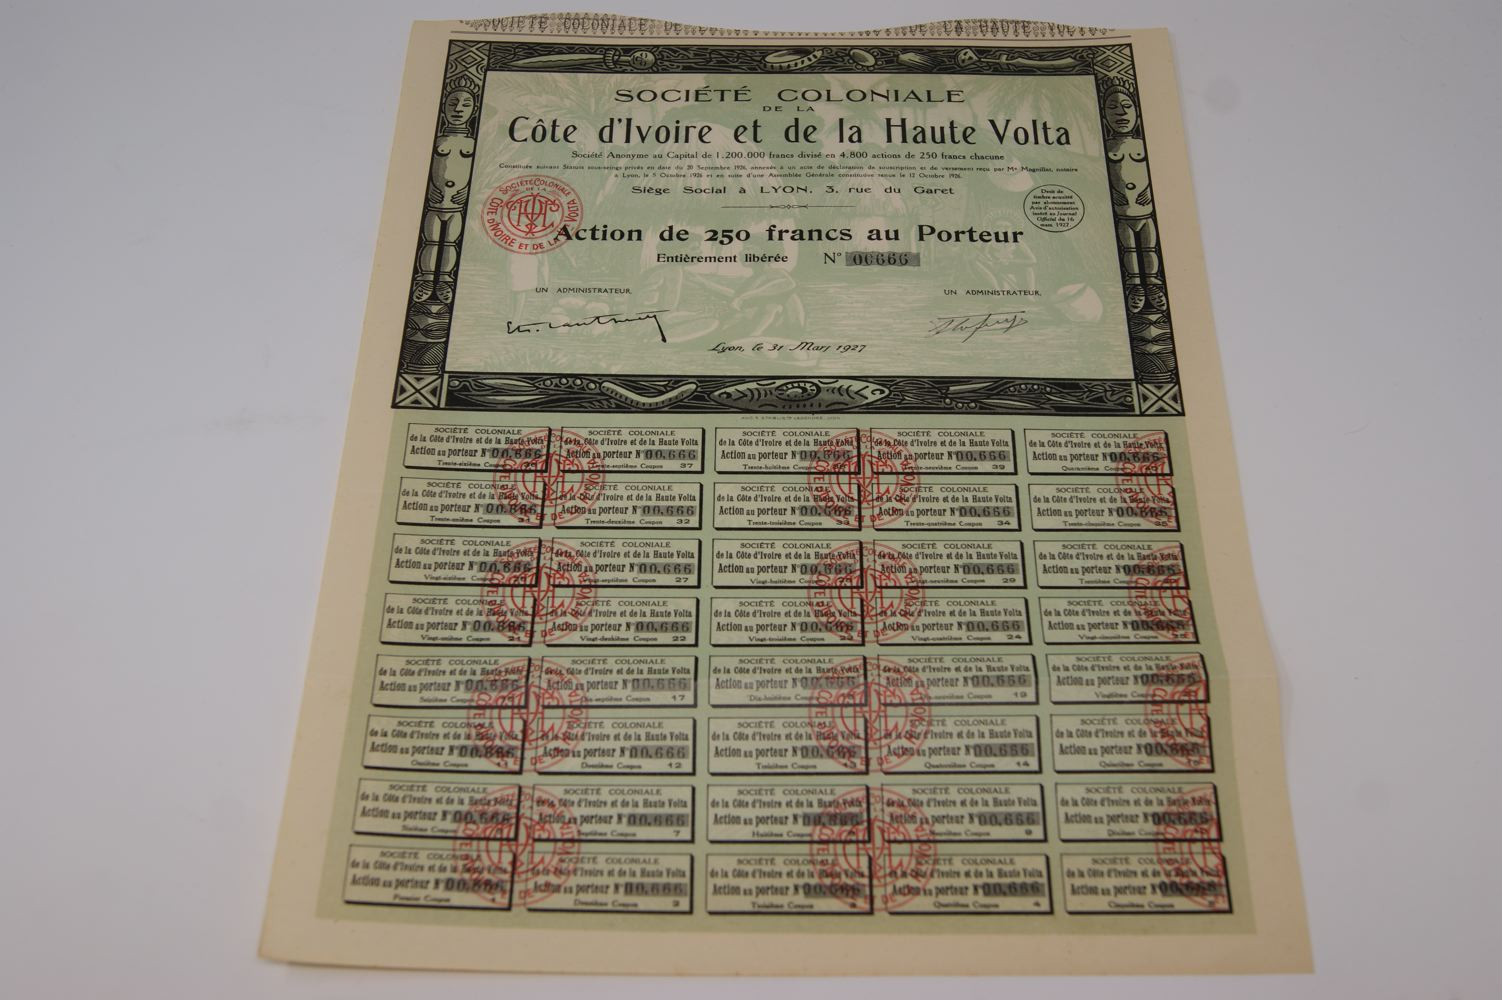 SOCIÉTÉ COLONIALE DE LA HAUTE VOLTA
SOCIÉTÉ COLONIALE
DE LA
Côte d'Ivoire et de la Haute Volta
Société Anonyme au Capital de 1.200.000 francs divisé en 4.800 actions de 250 francs chacune
Constituée suivant Statuts sous-seings privés en date du 20 Septembre 1926, annexés à un acte de déclaration de souscription et de versement reçu par Me Magnillat, notaire
à Lyon, le 5 Octobre 1926 et en suite d'une Assemblée Générale constitutive tenue le 12 Octobre 1926.
Siège Social à LYON, 3, rue du Garet
SOCIÉTÉ COLONIALE
DE LA
CÔTE D'IVOIRE ET DE LA HAUTE VOLTA
Droit de
timbre acquitté
par abonnement
Avis d'autorisation
inséré au Journal
Officiel du 16
mars 1927.
Action de 250 francs au Porteur
Entièrement libérée N° 00666
UN ADMINISTRATEUR, UN ADMINISTRATEUR,
Lyon, le 31 Mars 1927
SOCIÉTÉ COLONIALE
de la Côte d'Ivoire et de la Haute Volta
Action au porteur N° 00.666
Trente-sixième Coupon 36
SOCIÉTÉ COLONIALE
de la Côte d'Ivoire et de la Haute Volta
Action au porteur N° 00.666
Trente-septième Coupon 37
SOCIÉTÉ COLONIALE
de la Côte d'Ivoire et de la Haute Volta
Action au porteur N° 00.666
Trente-huitième Coupon 38
SOCIÉTÉ COLONIALE
de la Côte d'Ivoire et de la Haute Volta
Action au porteur N° 00.666
Trente-neuvième Coupon 39
SOCIÉTÉ COLONIALE
de la Côte d'Ivoire et de la Haute Volta
Action au porteur N° 00.666
Quarantième Coupon 40
SOCIÉTÉ COLONIALE
de la Côte d'Ivoire et de la Haute Volta
Action au porteur N° 00.666
Trente-unième Coupon 31
SOCIÉTÉ COLONIALE
de la Côte d'Ivoire et de la Haute Volta
Action au porteur N° 00.666
Trente-deuxième Coupon 32
SOCIÉTÉ COLONIALE
de la Côte d'Ivoire et de la Haute Volta
Action au porteur N° 00.666
Trente-troisième Coupon 33
SOCIÉTÉ COLONIALE
de la Côte d'Ivoire et de la Haute Volta
Action au porteur N° 00.666
Trente-quatrième Coupon 34
SOCIÉTÉ COLONIALE
de la Côte d'Ivoire et de la Haute Volta
Action au porteur N° 00.666
Trente-cinquième Coupon 35
SOCIÉTÉ COLONIALE
de la Côte d'Ivoire et de la Haute Volta
Action au porteur N° 00.666
Vingt-sixième Coupon 26
SOCIÉTÉ COLONIALE
de la Côte d'Ivoire et de la Haute Volta
Action au porteur N° 00.666
Vingt-septième Coupon 27
SOCIÉTÉ COLONIALE
de la Côte d'Ivoire et de la Haute Volta
Action au porteur N° 00.666
Vingt-huitième Coupon 28
SOCIÉTÉ COLONIALE
de la Côte d'Ivoire et de la Haute Volta
Action au porteur N° 00.666
Vingt-neuvième Coupon 29
SOCIÉTÉ COLONIALE
de la Côte d'Ivoire et de la Haute Volta
Action au porteur N° 00.666
Trentième Coupon 30
SOCIÉTÉ COLONIALE
de la Côte d'Ivoire et de la Haute Volta
Action au porteur N° 00.666
Vingt-unième Coupon 21
SOCIÉTÉ COLONIALE
de la Côte d'Ivoire et de la Haute Volta
Action au porteur N° 00.666
Vingt-deuxième Coupon 22
SOCIÉTÉ COLONIALE
de la Côte d'Ivoire et de la Haute Volta
Action au porteur N° 00.666
Vingt-troisième Coupon 23
SOCIÉTÉ COLONIALE
de la Côte d'Ivoire et de la Haute Volta
Action au porteur N° 00.666
Vingt-quatrième Coupon 24
SOCIÉTÉ COLONIALE
de la Côte d'Ivoire et de la Haute Volta
Action au porteur N° 00.666
Vingt-cinquième Coupon 25
SOCIÉTÉ COLONIALE
de la Côte d'Ivoire et de la Haute Volta
Action au porteur N° 00.666
Seizième Coupon 16
SOCIÉTÉ COLONIALE
de la Côte d'Ivoire et de la Haute Volta
Action au porteur N° 00.666
Dix-septième Coupon 17
SOCIÉTÉ COLONIALE
de la Côte d'Ivoire et de la Haute Volta
Action au porteur N° 00.666
Dix-huitième Coupon 18
SOCIÉTÉ COLONIALE
de la Côte d'Ivoire et de la Haute Volta
Action au porteur N° 00.666
Dix-neuvième Coupon 19
SOCIÉTÉ COLONIALE
de la Côte d'Ivoire et de la Haute Volta
Action au porteur N° 00.666
Vingtième Coupon 20
SOCIÉTÉ COLONIALE
de la Côte d'Ivoire et de la Haute Volta
Action au porteur N° 00.666
Onzième Coupon 11
SOCIÉTÉ COLONIALE
de la Côte d'Ivoire et de la Haute Volta
Action au porteur N° 00.666
Douzième Coupon 12
SOCIÉTÉ COLONIALE
de la Côte d'Ivoire et de la Haute Volta
Action au porteur N° 00.666
Treizième Coupon 13
SOCIÉTÉ COLONIALE
de la Côte d'Ivoire et de la Haute Volta
Action au porteur N° 00.666
Quatorzième Coupon 14
SOCIÉTÉ COLONIALE
de la Côte d'Ivoire et de la Haute Volta
Action au porteur N° 00.666
Quinzième Coupon 15
SOCIÉTÉ COLONIALE
de la Côte d'Ivoire et de la Haute Volta
Action au porteur N° 00.666
Sixième Coupon 6
SOCIÉTÉ COLONIALE
de la Côte d'Ivoire et de la Haute Volta
Action au porteur N° 00.666
Septième Coupon 7
SOCIÉTÉ COLONIALE
de la Côte d'Ivoire et de la Haute Volta
Action au porteur N° 00.666
Huitième Coupon 8
SOCIÉTÉ COLONIALE
de la Côte d'Ivoire et de la Haute Volta
Action au porteur N° 00.666
Neuvième Coupon 9
SOCIÉTÉ COLONIALE
de la Côte d'Ivoire et de la Haute Volta
Action au porteur N° 00.666
Dixième Coupon 10
SOCIÉTÉ COLONIALE
de la Côte d'Ivoire et de la Haute Volta
Action au porteur N° 00.666
Premier Coupon 1
SOCIÉTÉ COLONIALE
de la Côte d'Ivoire et de la Haute Volta
Action au porteur N° 00.666
Deuxième Coupon 2
SOCIÉTÉ COLONIALE
de la Côte d'Ivoire et de la Haute Volta
Action au porteur N° 00.666
Troisième Coupon 3
SOCIÉTÉ COLONIALE
de la Côte d'Ivoire et de la Haute Volta
Action au porteur N° 00.666
Quatrième Coupon 4
SOCIÉTÉ COLONIALE
de la Côte d'Ivoire et de la Haute Volta
Action au porteur N° 00.666
Cinquième Coupon 5